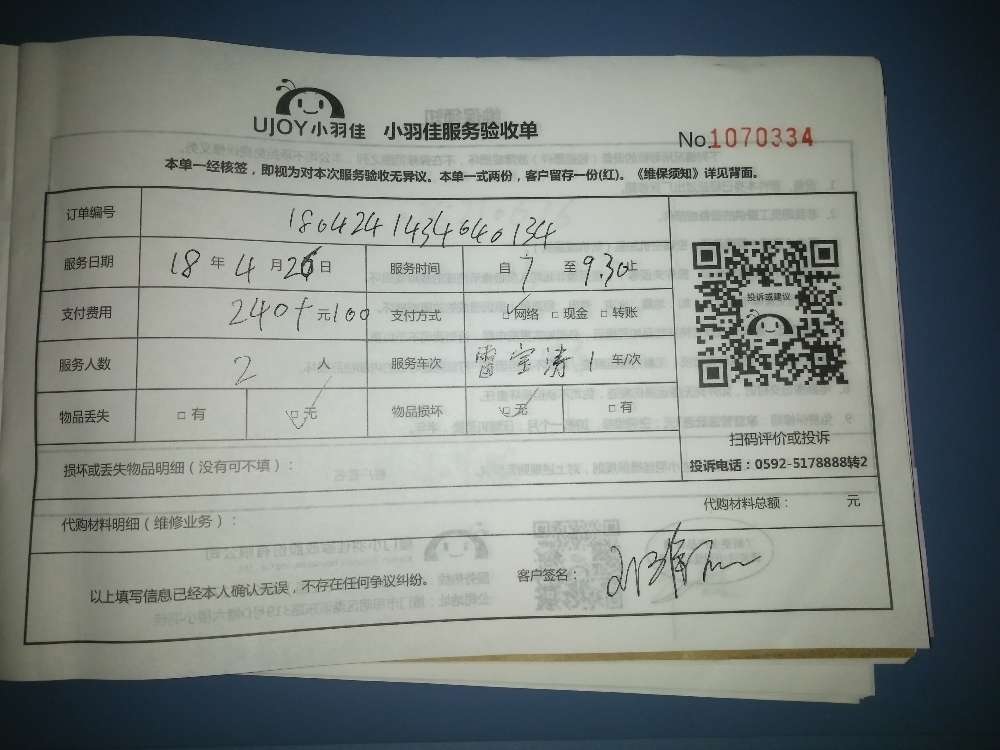 UJOY小羽佳 小羽佳服务验收单
No.1070334
本单一经核签，即视为对本次服务验收无异议。本单一式两份，客户留存一份(红)。《维保须知》详见背面。
订单编号 1804241434640134
服务日期 18 年 4 月 26 日 服务时间 自 7 至 9.30 止
支付费用 240+ 元 100 支付方式 网络 □ 现金 □ 转账
服务人数 2 人 服务车次 雷宝涛 1 车/次
物品丢失 □ 有 □ 无 物品损坏 □ 无 □ 有
投诉或建议
扫码评价或投诉
投诉电话：0592-5178888转2
损坏或丢失物品明细（没有可不填）：
代购材料明细（维修业务）： 代购材料总额： 元
以上填写信息已经本人确认无误，不存在任何争议纠纷。 客户签名：